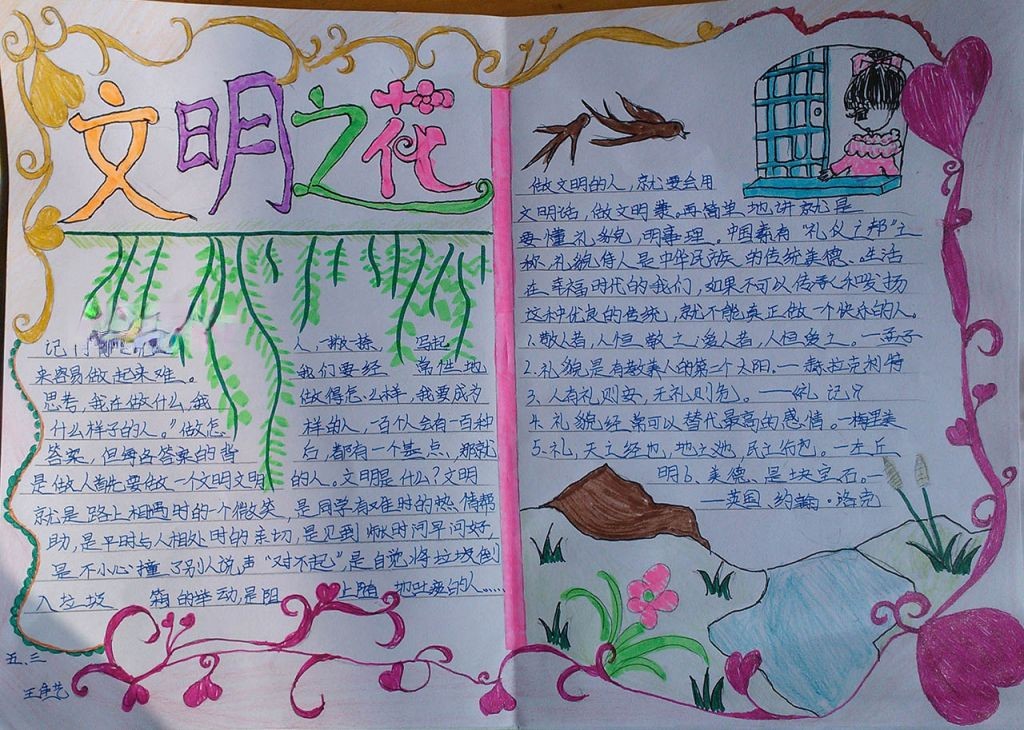 文明之花
人,一撇一捺 写起
来容易做起来难。 我们要经 常性地
思考,我在做什么,我 做得怎么样,我要成为
什么样子的人。”做怎 样的人,一百个人会有一百种
答案,但每各答案的背 后,都有一个基点,那就
是做人首先要做一个文明文明 的人。文明是什么?文明
就是路上相遇时的一个微笑,是同学有难时的热情帮
助,是平时与人相处时的亲切,是见到师长时问早问好,
是不小心撞了别人说声“对不起”,是自觉将垃圾倒
入垃圾 箱的举动,是阻 止随 地吐痰的人……
五、三
做文明的人,就要会用
文明话,做文明袭。再简单地讲就是
要懂礼貌,明事理。中国素有“礼仪之邦”之
称,礼貌待人是中华民族的传统美德、生活
在幸福时代的我们,如果不可以传承和发扬
这种优良的传统,就不能真正做一个快乐的人。
1.敬人者,人恒敬之;爱人者,人恒爱之。——孟子
2.礼貌是有教养人的第二个太阳.——赫拉克利特
3、人有礼则安,无礼则危。——《礼 记》
4.礼貌经常可以替代最高的感情。—梅里美
5.礼,天之经也,地之 ,民之 也。—左丘
明6、美德、是块宝石。——
—英国、约翰·洛克